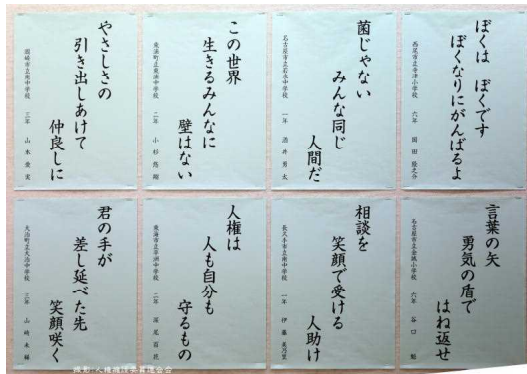 ぼくは ぼくです
ぼくなりにがんばるよ
西尾市立寺津小学校 六年
菌じゃない
みんな同じ
人間だ
名古屋市立若水中学校 一年 酒井勇太
この世界
生きるみんなに
壁はない
東浦町立東浦中学校 二年 小杉悠翔
やさしさの
引き出しあけて
仲良しに
岡崎市立南中学校 三年 山本愛実
言葉の矢
勇気の盾で
はね返せ
名古屋市立金城小学校 六年 谷口
相談を
笑顔で受ける
人助け
長久手市立南中学校 一年 伊藤美乃里
人権は
人も自分も
守るもの
東海市立平洲中学校 二年 深尾百花
君の手が
差し延べた先
笑顔咲く
大治町立大治中学校 三年 山崎未緒
撮影:人権擁護委員連合会